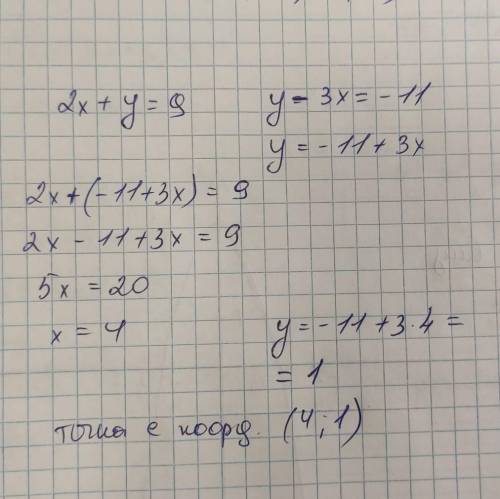 2x + y = 9
y - 3x = -11
y = -11 + 3x
2x + (-11+3x) = 9
2x - 11 + 3x = 9
5x = 20
x = 4
y = -11 + 3·4 =
= 1
точка с коорд. (4; 1)